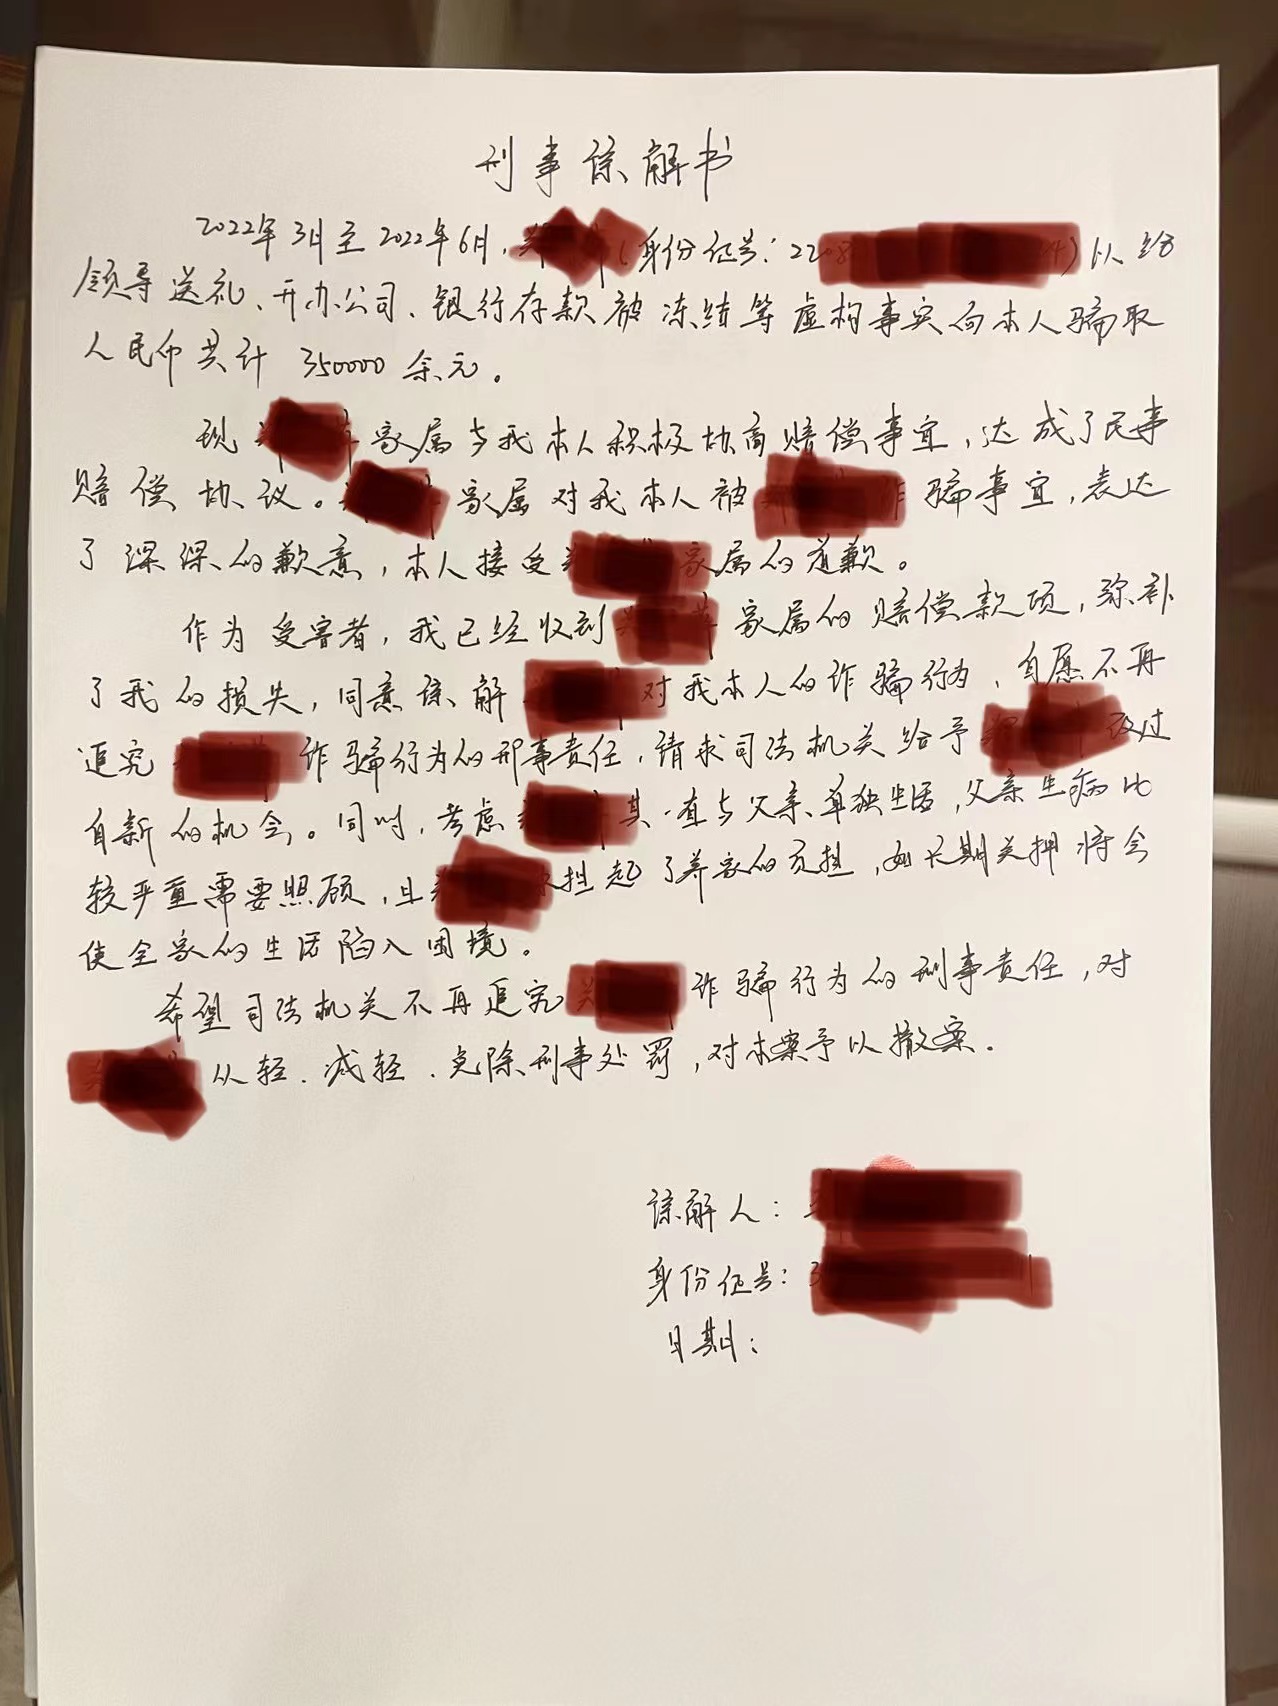 刑事谅解书
2022年3月至2022年6月,(身份证号:2208 4)以给
领导送礼、开办公司、银行存款被冻结等虚构事实向本人骗取
人民币共计350000余元。
现 家属与我本人积极协商赔偿事宜,达成了民事
赔偿协议。 家属对我本人被 诈骗事宜,表达
了深深的歉意,本人接受 家属的道歉。
作为受害者,我已经收到 家属的赔偿款项,弥补
了我的损失,同意谅解 对我本人的诈骗行为,自愿不再
追究 诈骗行为的刑事责任,请求司法机关给予 改过
自新的机会。同时,考虑 其一直与父亲单独生活,父亲生病比
较严重需要照顾,且 担起了养家的负担,如长期关押将会
使全家的生活陷入困境。
希望司法机关不再追究 诈骗行为的刑事责任,对
从轻、减轻、免除刑事处罚,对本案予以撤案。
谅解人:
身份证号:3 1
日期: